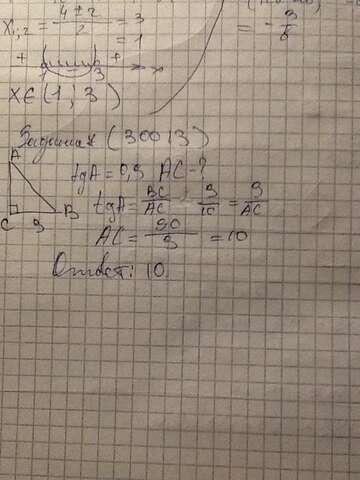 x₁,₂ = (4 ± 2)/2 = 3
= 1
+ 1 3 + x
x ∈ (1; 3)
= - 3/8
Задача (30013)
A
C 9 B
tgA = 0,9 AC - ?
tgA = BC/AC 9/10 = 9/AC
AC = 90/9 = 10
Ответ: 10.